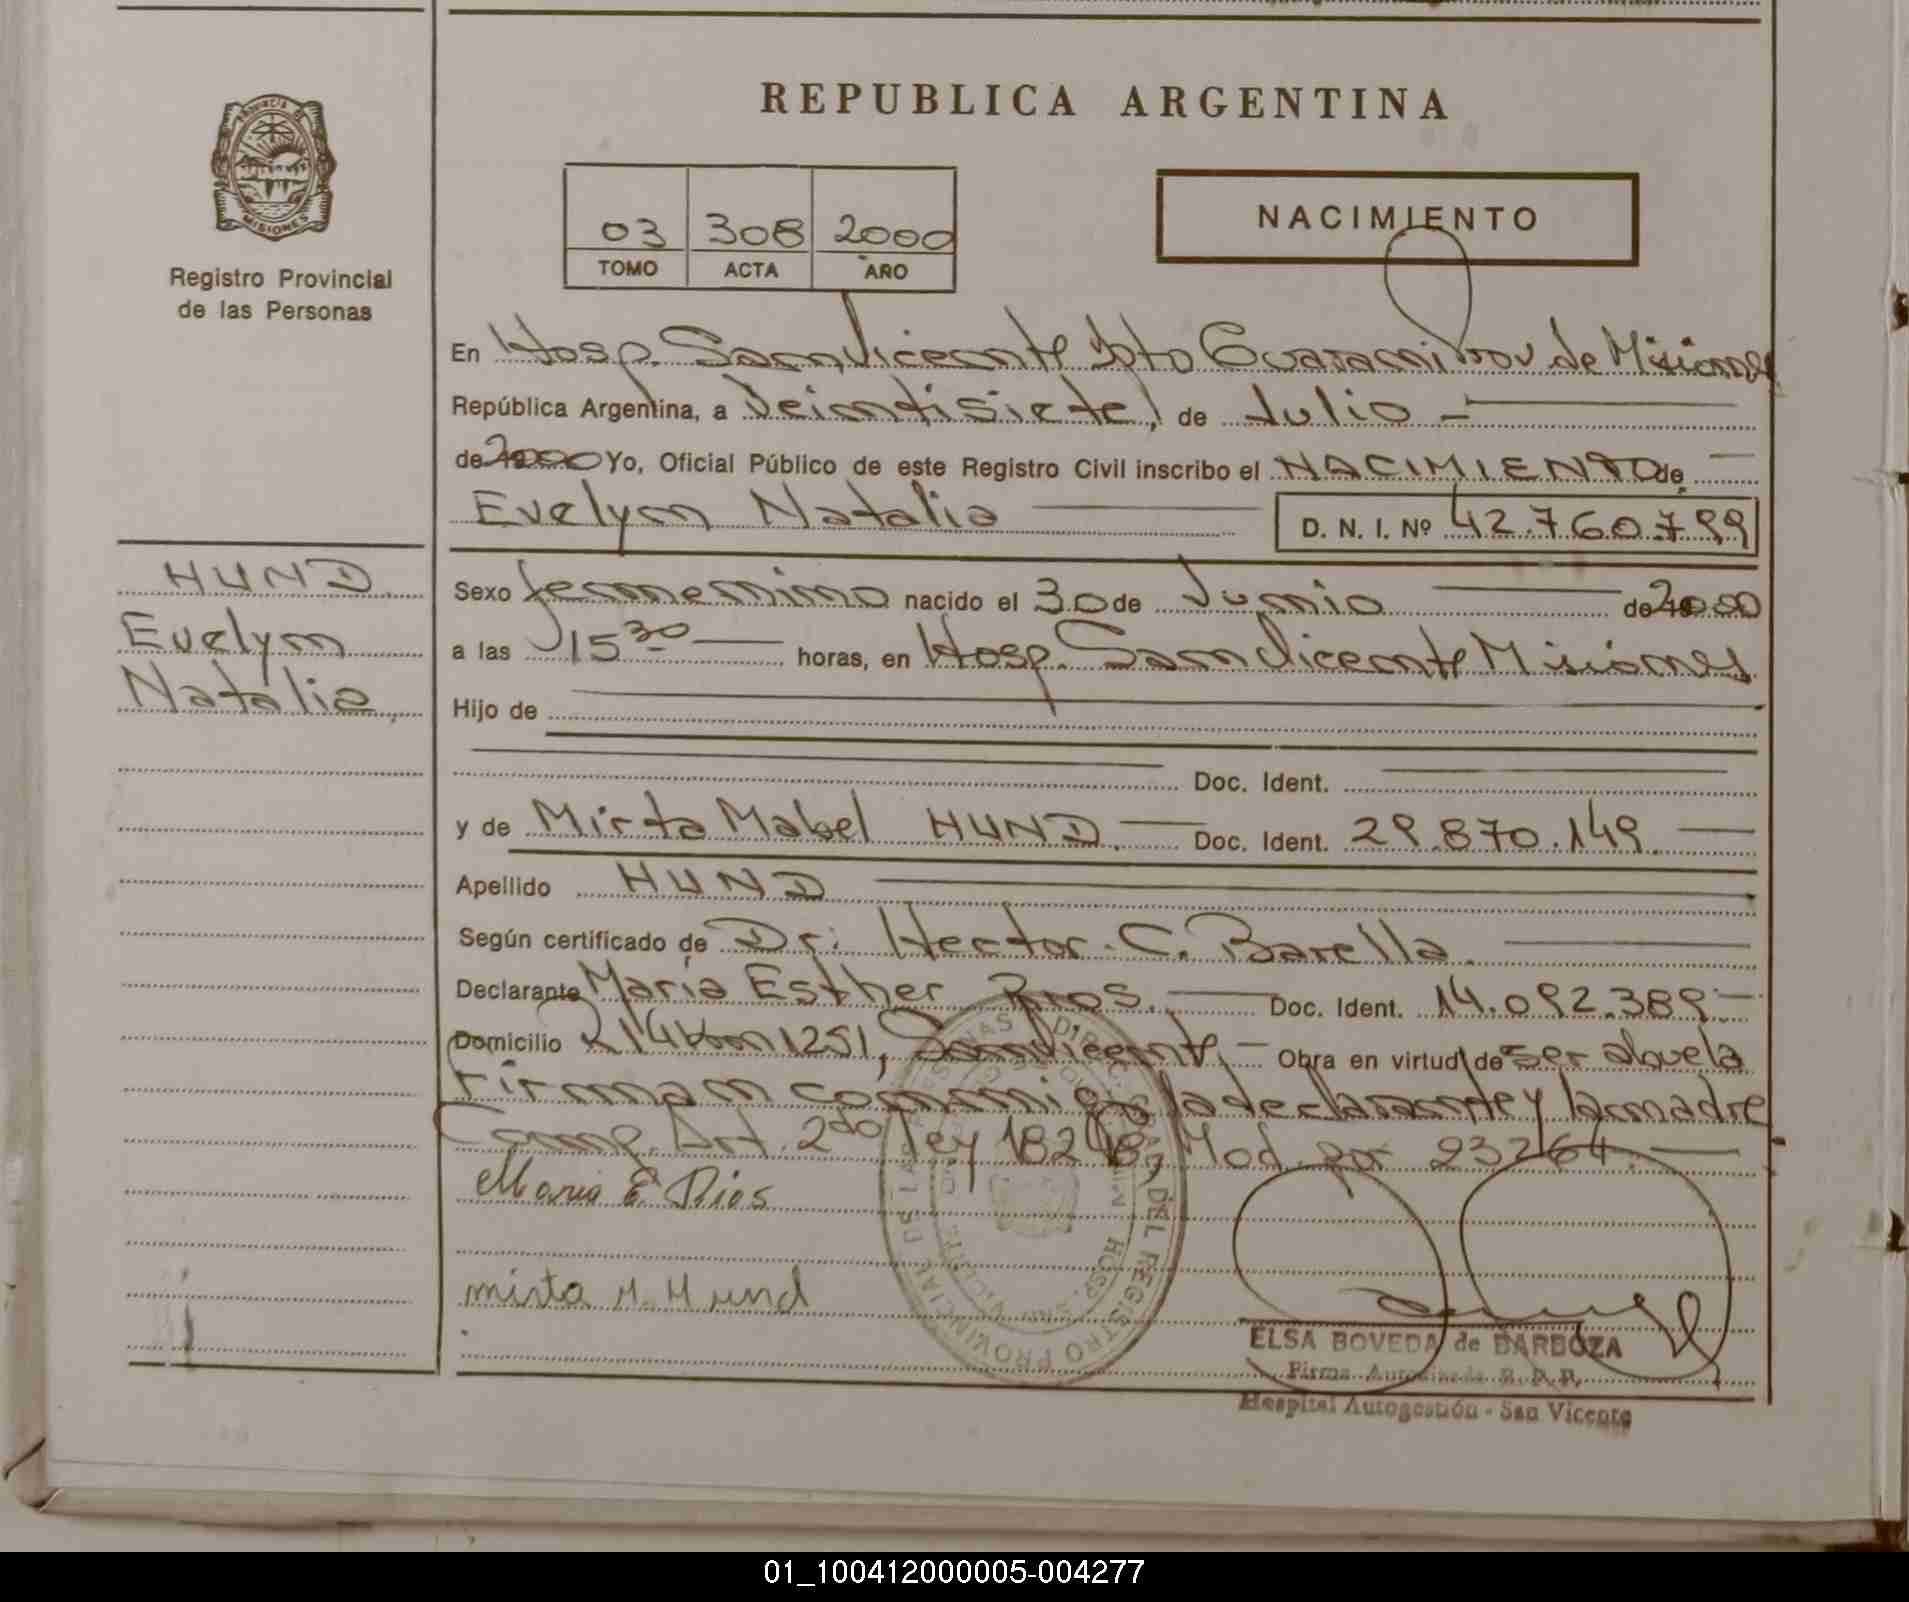 REPUBLICA ARGENTINA
PROVINCIA DE
MISIONES
Registro Provincial
de las Personas
03 308 2000
TOMO ACTA AÑO
NACIMIENTO
En Hosp. San Vicente Dpto Guarani Prov de Misiones
República Argentina, a Veintisiete, de Julio
de 2000 Yo, Oficial Público de este Registro Civil inscribo el NACIMIENTO de
Evelyn Natalia D. N. I. Nº 42.760.799
HUND
Evelyn
Natalia
Sexo femenino nacido el 30 de Junio de 2000
a las 15 30 horas, en Hosp. San Vicente Misiones
Hijo de
Doc. Ident.
y de Mirta Mabel HUND. Doc. Ident. 29.870.149.
Apellido HUND
Según certificado de Dr. Hector C. Barella.
Declarante Maria Esther Rios. Doc. Ident. 14.092.389.
Domicilio R 14 Km 1251, San Vicente. Obra en virtud de ser abuela
Firman conmigo la declarante y la madre
Comp. Art. 2do ley 18248, Mod. por 23264.
Maria E. Rios
mirta M. Hund
DIREC. GRAL. DEL REGISTRO PROVINCIAL DE LAS PERSONAS
HOSP. SAN VICENTE
ELSA BOVEDA de BARBOZA
Firma Autorizada R. P. P.
Hospital Autogestión - San Vicente
01_100412000005-004277